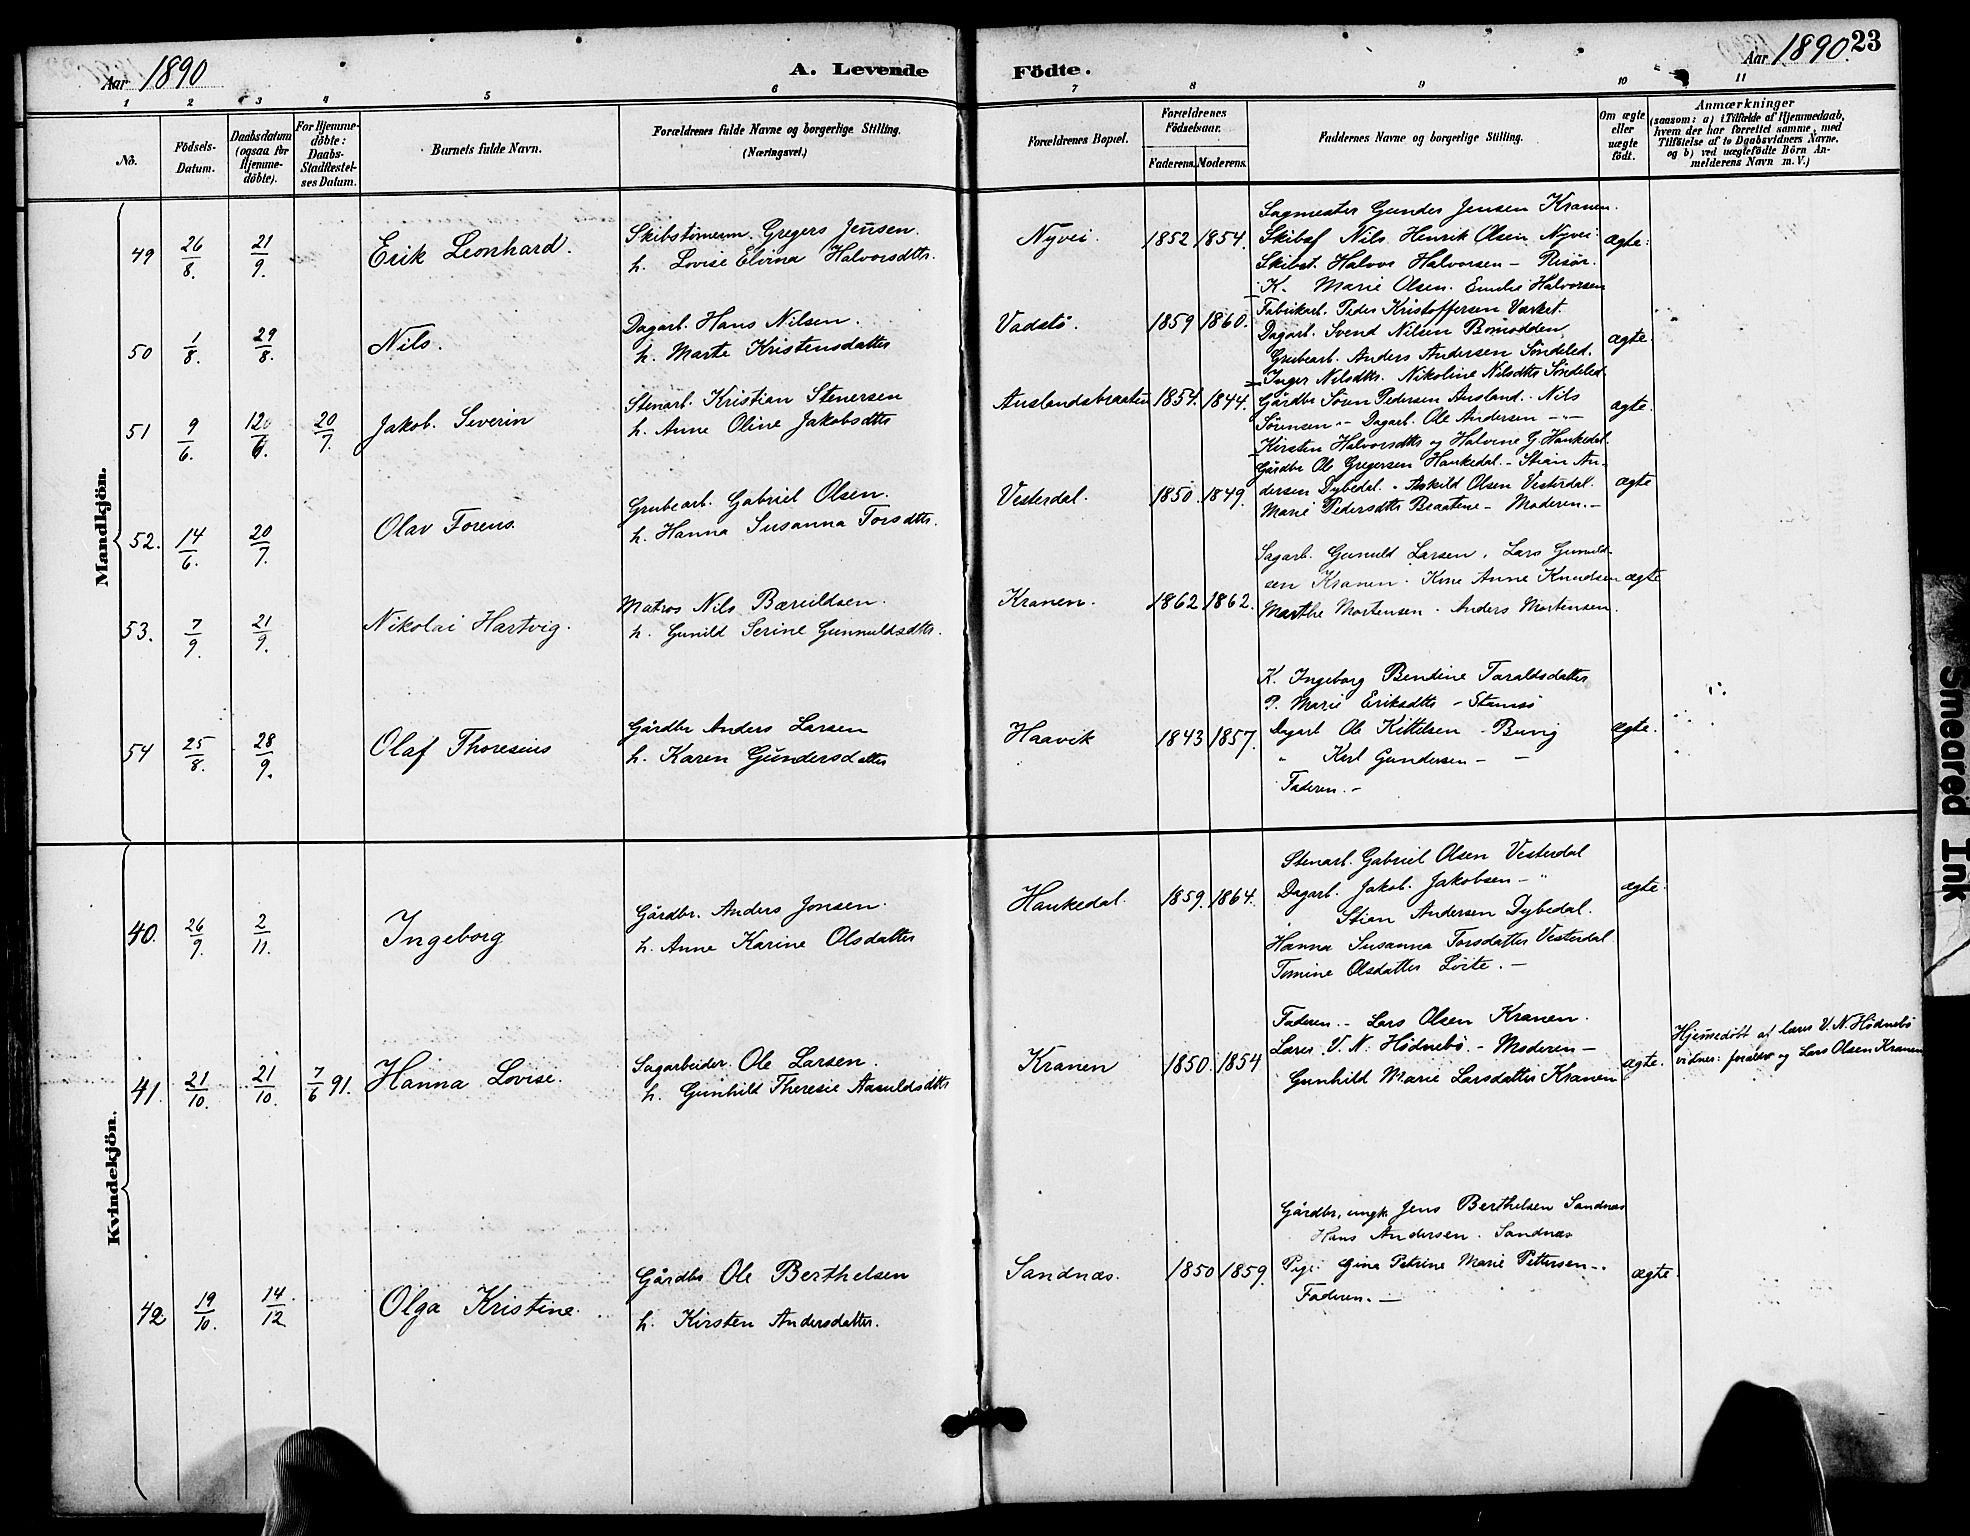 Aar 1890
A. Levende Födte.
Aar 1890. 23
1 2 3 4 5 6 7 8 9 10 11
No.
Födsels-Datum.
Daabsdatum (ogsaa for Hjemme-döbte).
For Hjemme-döbte: Daabs-Stadfæstel-ses Datum.
Barnets fulde Navn.
Forældrenes fulde Navne og borgerlige Stilling. (Næringsvei.)
Forældrenes Bopæl.
Forældrenes Födselsaar.
Faderens. Moderens.
Faddernes Navne og borgerlige Stilling.
Om ægte eller uægte födt.
Anmærkninger
(saasom: a) i Tilfælde af Hjemmedaab,
hvem der har forrettet samme, med
Tilföielse af to Daabsvidners Navne,
og b) ved uægtefödte Börn An-
melderens Navn m. V.)
Mandkjön.
49 26/8. 21/9. Erik Leonhard.
Skibstömerm. Gregers Jensen.
h. Lovise Elvina Halvorsdtr.
Nyvei. 1852 1854.
Sagmester Gunder Jensen Kranen.
Skibsf Nils Henrik Olsen Nyvei.
Skibst. Halvor Halvorsen – Risør.
K. Marie Olsen. Emilie Halvorsen
ægte.
50 1/8. 29/8. Nils.
Dagarb. Hans Nilsen.
h. Marte Kristensdatter
Vadstö. 1859 1860.
Fabrikarb. Peder Kristoffersen Værket.
Dagarb. Svend Nilsen Bomodden
Grubearb. Anders Andersen Söndeled.
Inger Nilsdtr. Nikoline Nilsdtr Söndeled
ægte.
51 9/6. 20/7. Jakob Severin
Stenarb. Kristian Stenersen
h. Anne Oline Jakobsdtr
Auslandsbraaten 1854. 1844.
Gårdbr Sören Pedersen Ausland. Nils
Sörensen – Dagarb. Ole Andersen –
Kirsten Halvorsdtr og Halvine G. Haukedal.
ægte.
52. 14/6. 20/7. Olav Torens.
Grubearb. Gabriel Olsen.
h. Hanna Susanna Torsdtr.
Vesterdal. 1850. 1849.
Gårdbr Ole Gregersen Haukedal. – Stian An-
dersen Dybedal. Askild Olsen Vesterdal.
Marie Pedersdtr Braatene – Moderen. –
ægte
53. 7/9. 21/9. Nikolai Hartvig.
Matros Nils Bærulfsen.
h. Gunild Serine Gunnuldsdtr.
Kranen. 1862 1862.
Sagarb. Gunuld Larsen. Lars Gunuld-
sen Kranen. Kone Anne Knudsen
Marthe Mortensen. Anders Mortensen.
ægte
54 25/8. 28/9. Olaf Thoresius
Gårdbr Anders Larsen
h. Karen Gundersdatter
Haavik 1843 1857.
K. Ingeborg Bendine Taraldsdatter
P. Marie Eriksdtr – Stamsö
Dagarb Ole Kittelsen – Buvig
" Karl Gundersen – –
Faderen. –
ægte.
Kvindekjön.
40. 26/9. 2/11. Ingeborg
Gårdbr. Anders Jonsen.
h. Anne Karine Olsdatter
Haukedal. 1859. 1864.
Stenarb. Gabriel Olsen Vesterdal
Dagarb. Jakob Jakobsen – "
Stian Andersen Dybedal.
Hanna Susanna Torsdatter Vesterdal
Tomine Olsdatter Löite. –
ægte.
41. 21/10. 21/10. 7/6 91. Hanna Lovise.
Sagarbeider Ole Larsen.
h. Gunhild Theresie Aasuldsdtr
Kranen 1850. 1854
Faderen. – Lars Olsen Kranen.
Lærer V. N. Hödnebö – Moderen –
Gunhild Marie Larsdatter Kranen
ægte.
Hjemmedöbt af lærer V. N. Hödnebö
vidner: forældr og Lars Olsen Kranen
42 19/10. 14/12 Olga Kristine.
Gårdbr Ole Berthelsen
h. Kirsten Andersdatter.
Sandnæs. 1850 1859.
Gårdbr, ungk. Jens Berthelsen Sandnæs
Hans Andersen. Sandnæs
Pige Gina Petrine Marie Pettersen –
Faderen. –
ægte.
Smeared Ink